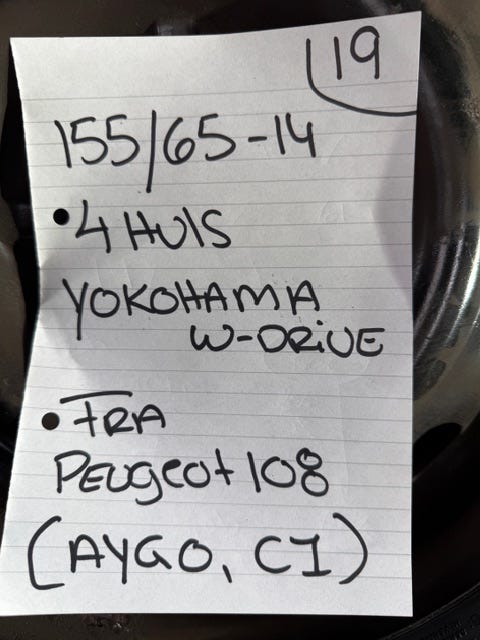 19
155/65-14
• 4 HULS
YOKOHAMA
W-DRiVE
• FRA
PEUgeot 108
(AYGO, C1)